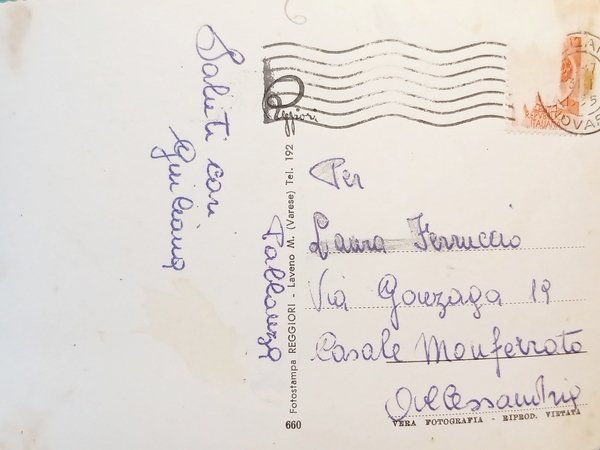 6
Saluti cari
Giuliana
Pallanza
Per
Laura Ferruccio
Via Gonzaga 19
Casale Monferrato
Alessandria
Reggiori
ITALIANA
NOVAR
Fotostampa REGGIORI - Laveno M. (Varese) Tel. 192
660
VERA FOTOGRAFIA - RIPROD. VIETATA